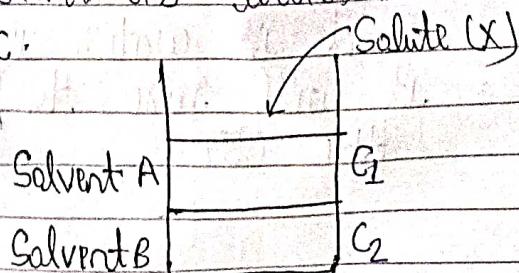 c.
Solute (X)
Solvent A C1
Solvent B C2